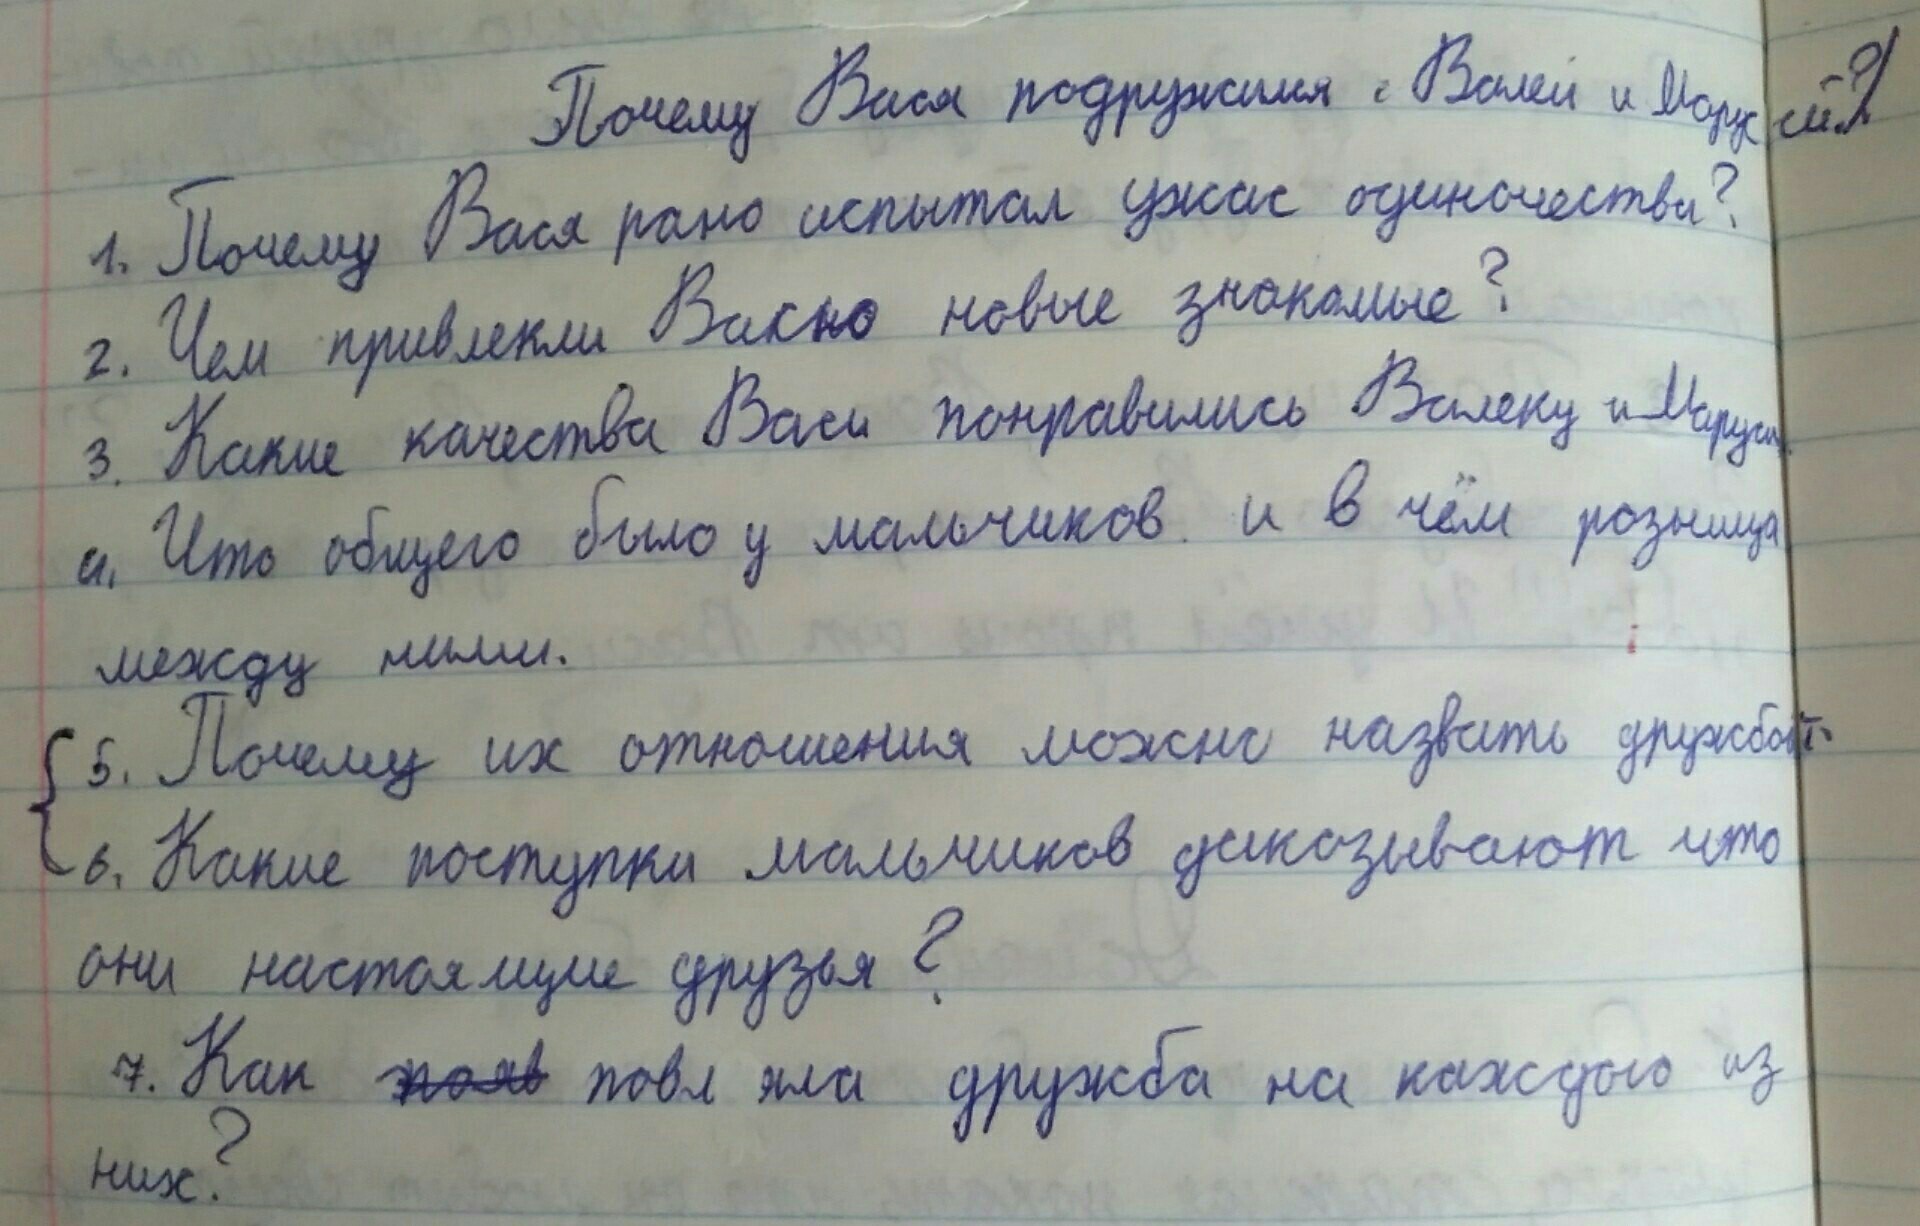 Почему Вася подружился с Валей и Марусей?
1. Почему Вася рано испытал ужас одиночества?
2. Чем привлекли Васю новые знакомые?
3. Какие качества Васи понравились Валеку и Марусе
4. Что общего было у мальчиков и в чём розница
между ними.
5. Почему их отношения можно назвать дружбой
6. Какие поступки мальчиков доказывают что
они настоящие друзья?
7. Как повл яла дружба на каждого из
них?